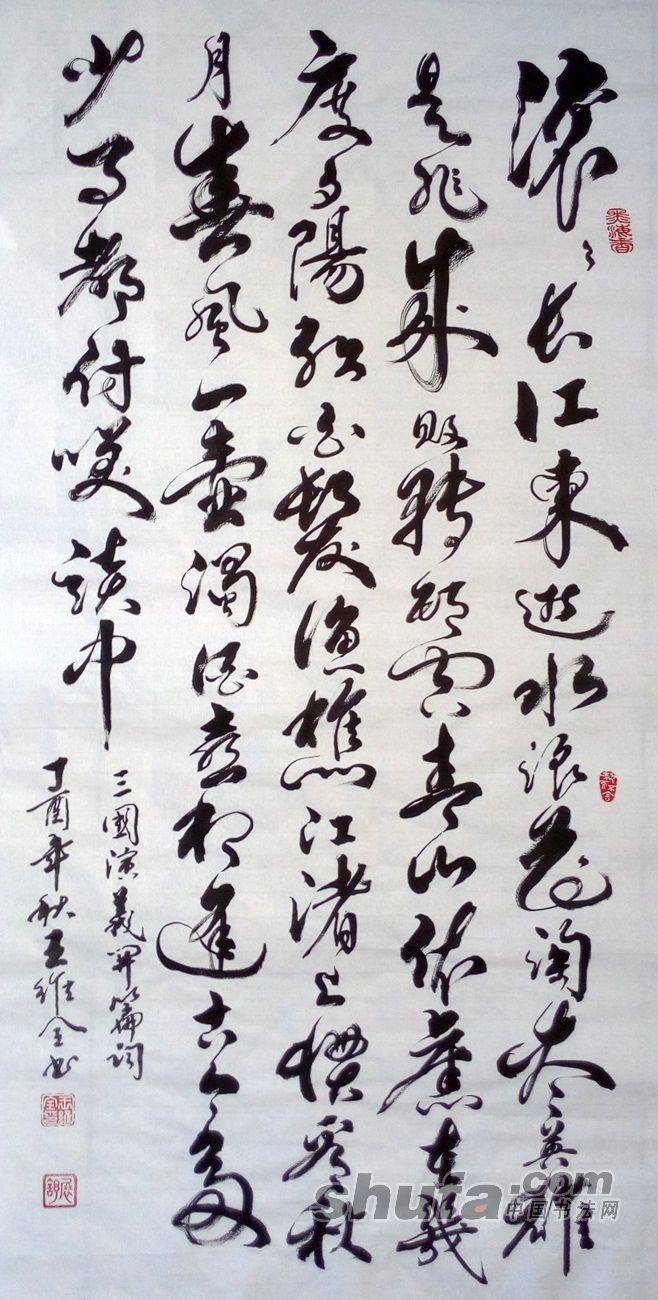 滚〻长江東逝水浪花淘尽英雄
是非成败转头空青山依舊在幾
度夕陽红白髮渔樵江渚上惯看秋
月春風一壶濁酒喜相逢古今多
少事都付笑談中
三國演義開篇詞
丁酉年秋王維全书
shufa.com
中国书法网